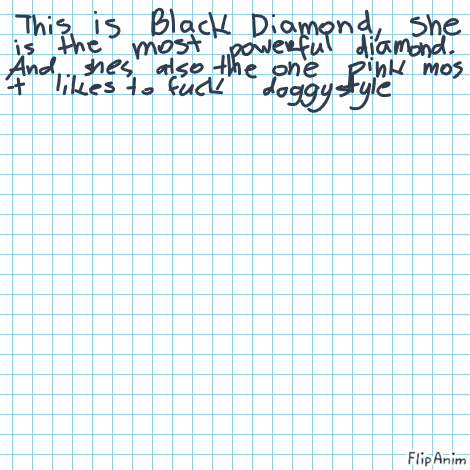 This is Black Diamond, she
is the most powerful diamond.
And shes also the one pink mos
t likes to fuck doggystyle
FlipAnim